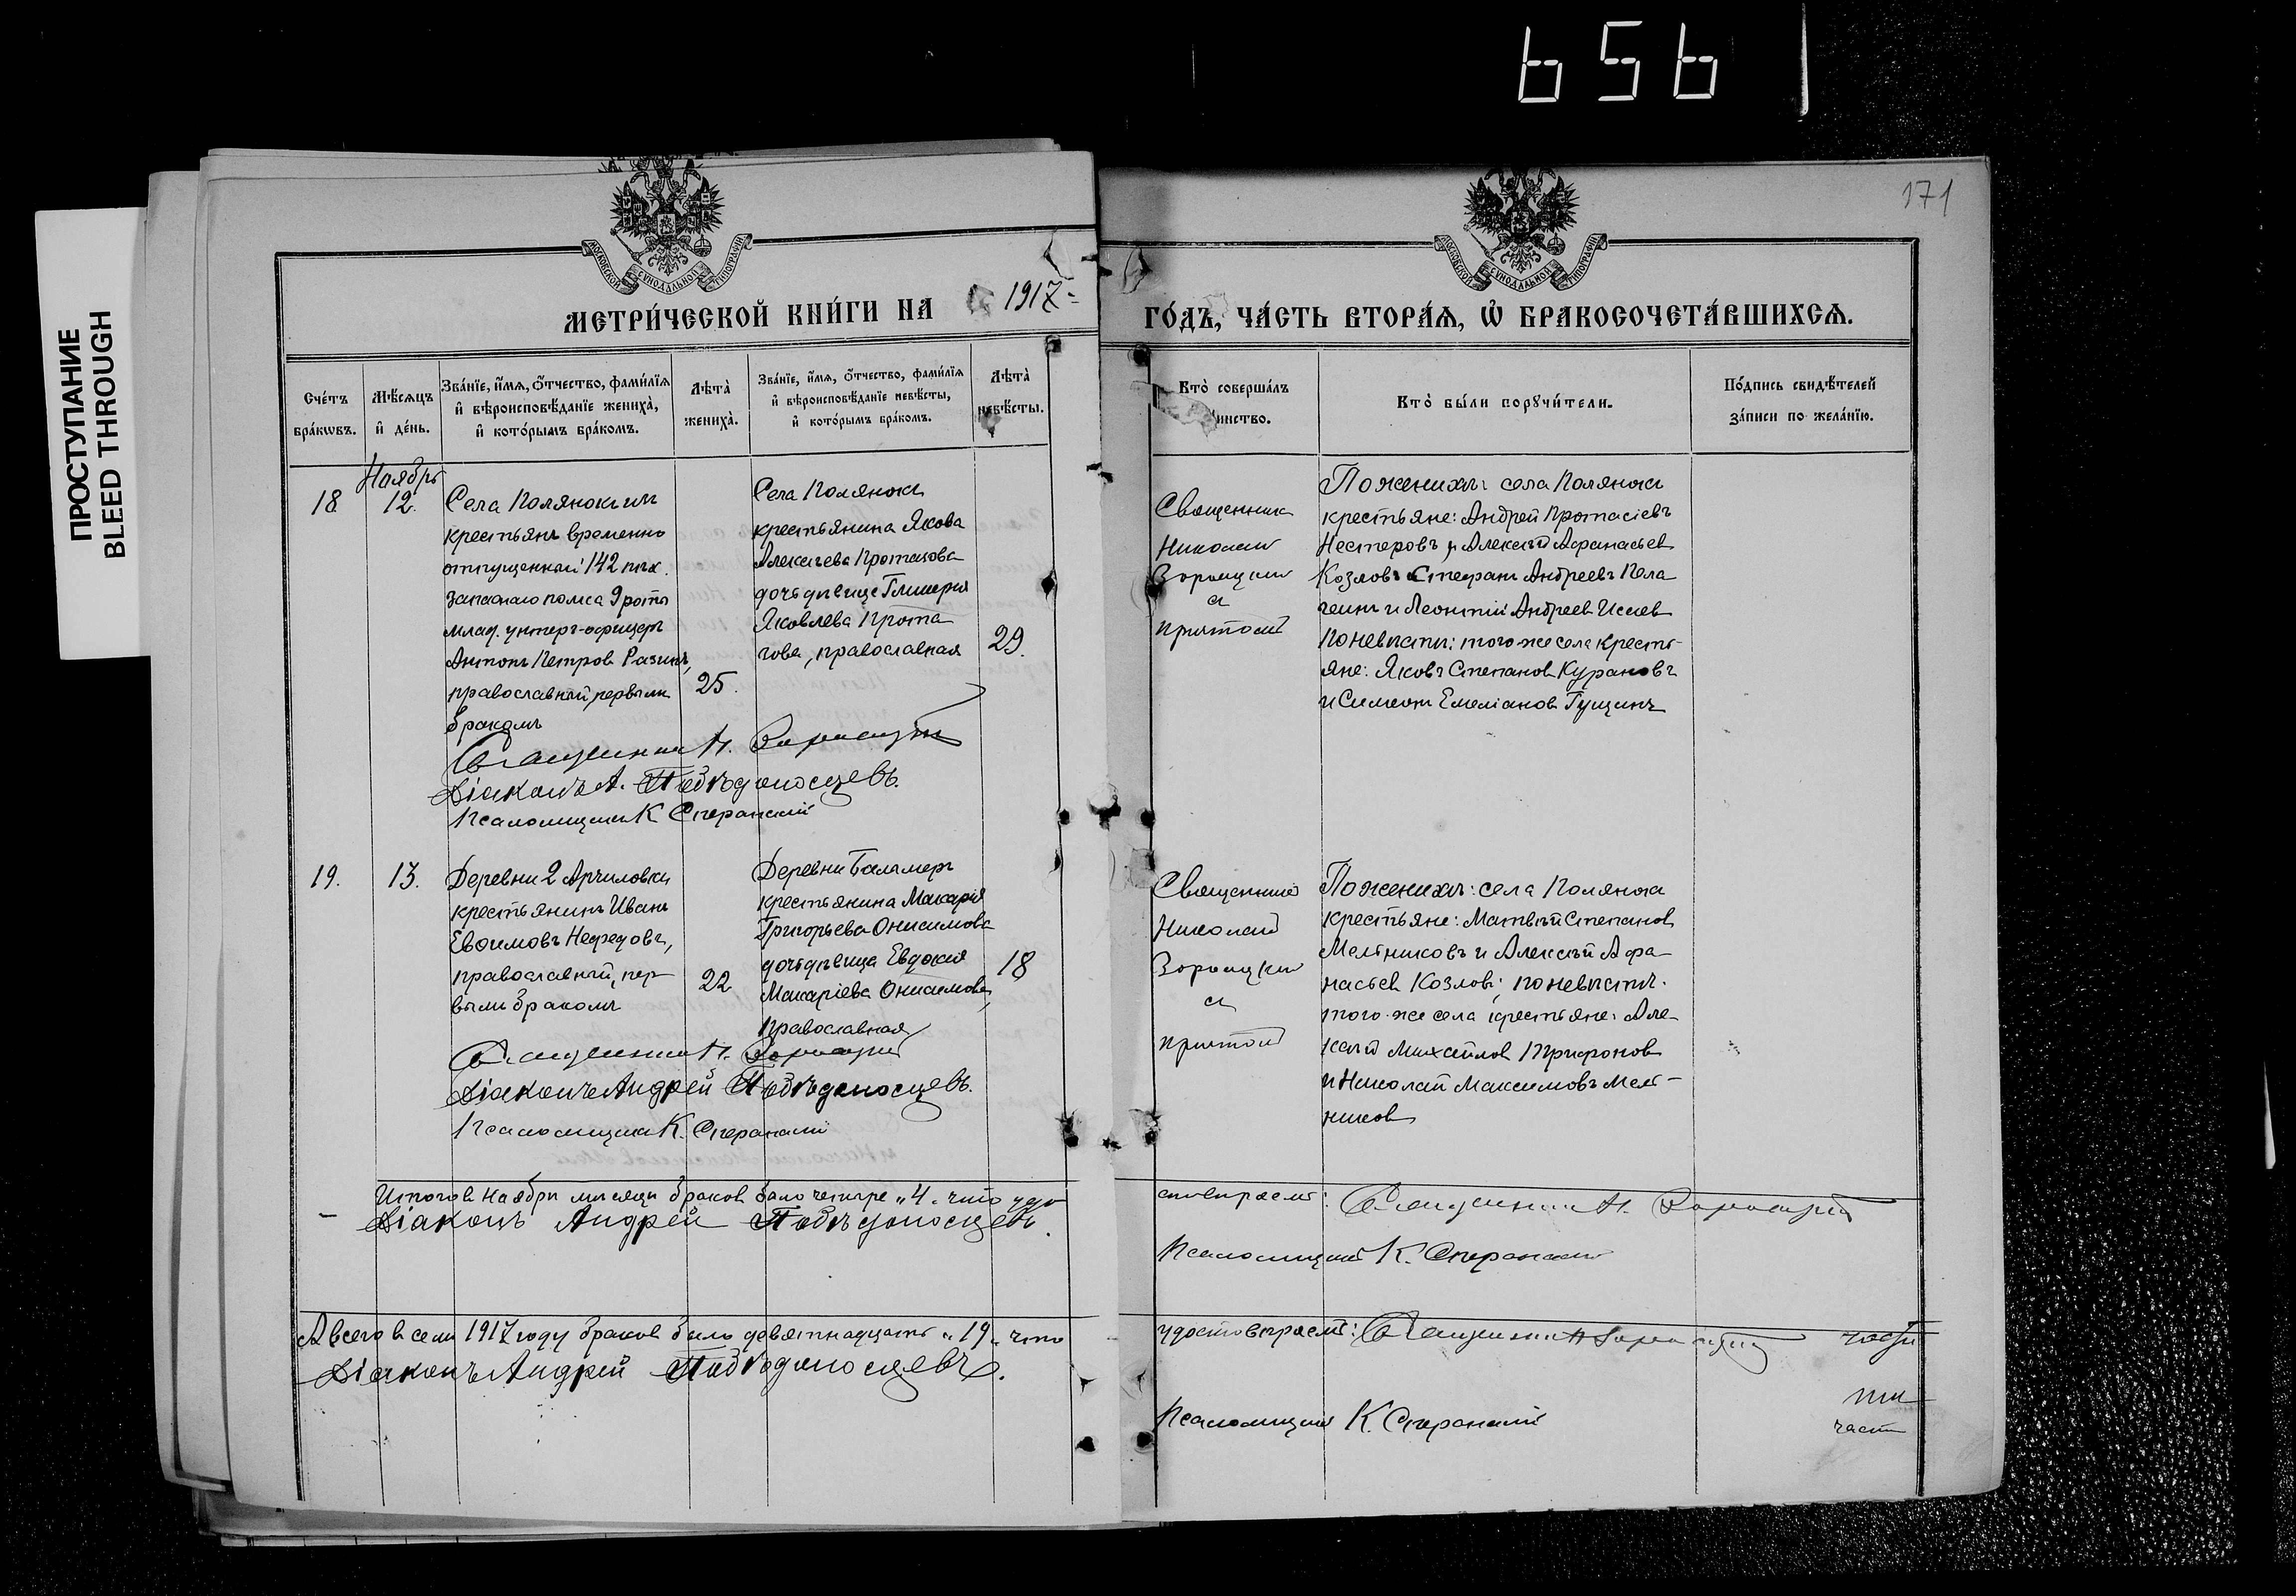 6561
ПРОСТУПАНИЕ
BLEED THROUGH
171
МОСКОВСКОЙ СѴНОДАЛЬНОЙ ТИПОГРАФІИ
МОСКОВСКОЙ СѴНОДАЛЬНОЙ ТИПОГРАФІИ
МЕТРИ́ЧЕСКОЙ КНИ́ГИ НА 1917
ГО́ДЪ, ЧА́СТЬ ВТОРА́Я, Ѽ БРАКОСОЧЕТА́ВШИХСѦ.
Сче́тъ бра́кѡвъ.
Мѣ́сяцъ и҆ де́нь.
Зва́нїе, и҆́мѧ, ѻ҆́тчество, фами́лїѧ
и҆ вѣроисповѣ́данїе жениха̀,
и҆ кото́рымъ бра́комъ.
Лѣта̀ жениха̀.
Зва́нїе, и҆́мѧ, ѻ҆́тчество, фами́лїѧ
и҆ вѣроисповѣ́данїе невѣ́сты,
и҆ кото́рымъ бра́комъ.
Лѣта̀ невѣ́сты.
Кто̀ соверша́лъ
инство.
Кто̀ бы́ли порꙋчи́тели.
По́дпись свидѣ́телей
за́писи по жела́нїю.
Ноябрь
18
12.
Села Полянокъ
крестьянъ временно
отпущенный 142 пѣх.
запаснаго полка 9 роты
млад. унтеръ-офицеръ
Антонъ Петров Разинъ,
православный, первымъ
бракомъ
25.
Села Полянокъ
крестьянина Якова
Алексѣева
дочь дѣвица Гликерія
Яковлева
православная
29.
Священникъ
Николай
съ
причтомъ
По женихѣ: села Полянокъ
крестьяне: Андрей Протасіевъ
Нестеровъ, Алексѣй Афанасьев
Козловъ Стефанъ Андреевъ
и Леонтій Андреев
По невѣстѣ: того-же села кресть-
яне: Яковъ Степанов Курановъ
и Симеон Емеліанов Гущинъ
Священник Н.
Діаконъ А. Побѣдоносцевъ.
Псаломщикъ К Сперанскій
19.
13.
Деревни 2 Арчиловки
крестьянинъ Иванъ
Евфимовъ Нефедовъ,
православный, пер-
вымъ бракомъ
22
Деревни Баламеръ
крестьянина Макарія
Григорьева Онисимова
дочь дѣвица Евдокія
Макаріева Онисимова,
Православная
18
Священникъ
Николай
съ
причтомъ
По женихѣ: села Полянокъ
крестьяне: Матвѣй Степанов
Мельниковъ и Алексѣй Афа-
насьев Козлов; по невѣстѣ:
того-же села крестьяне: Але-
ксѣй Михайлов Трифонов
и Николай Максимовъ Мель-
ников
Священник Н.
Діаконъ Андрей Побѣдоносцевъ.
Псаломщикъ К. Сперанскій
Итого в ноябрѣ мѣсяцѣ браков было четыре „4„ что удо
стовѣряемъ: Священник Н.
Діаконъ Андрей Побѣдоносцевъ.
Псаломщикъ К. Сперанскій
А всего в семъ 1917 году браков было девятнадцать „19„ что
удостовѣряемъ: Священник Н
Діаконъ Андрей Побѣдоносцевъ.
Псаломщикъ К. Сперанскій
части